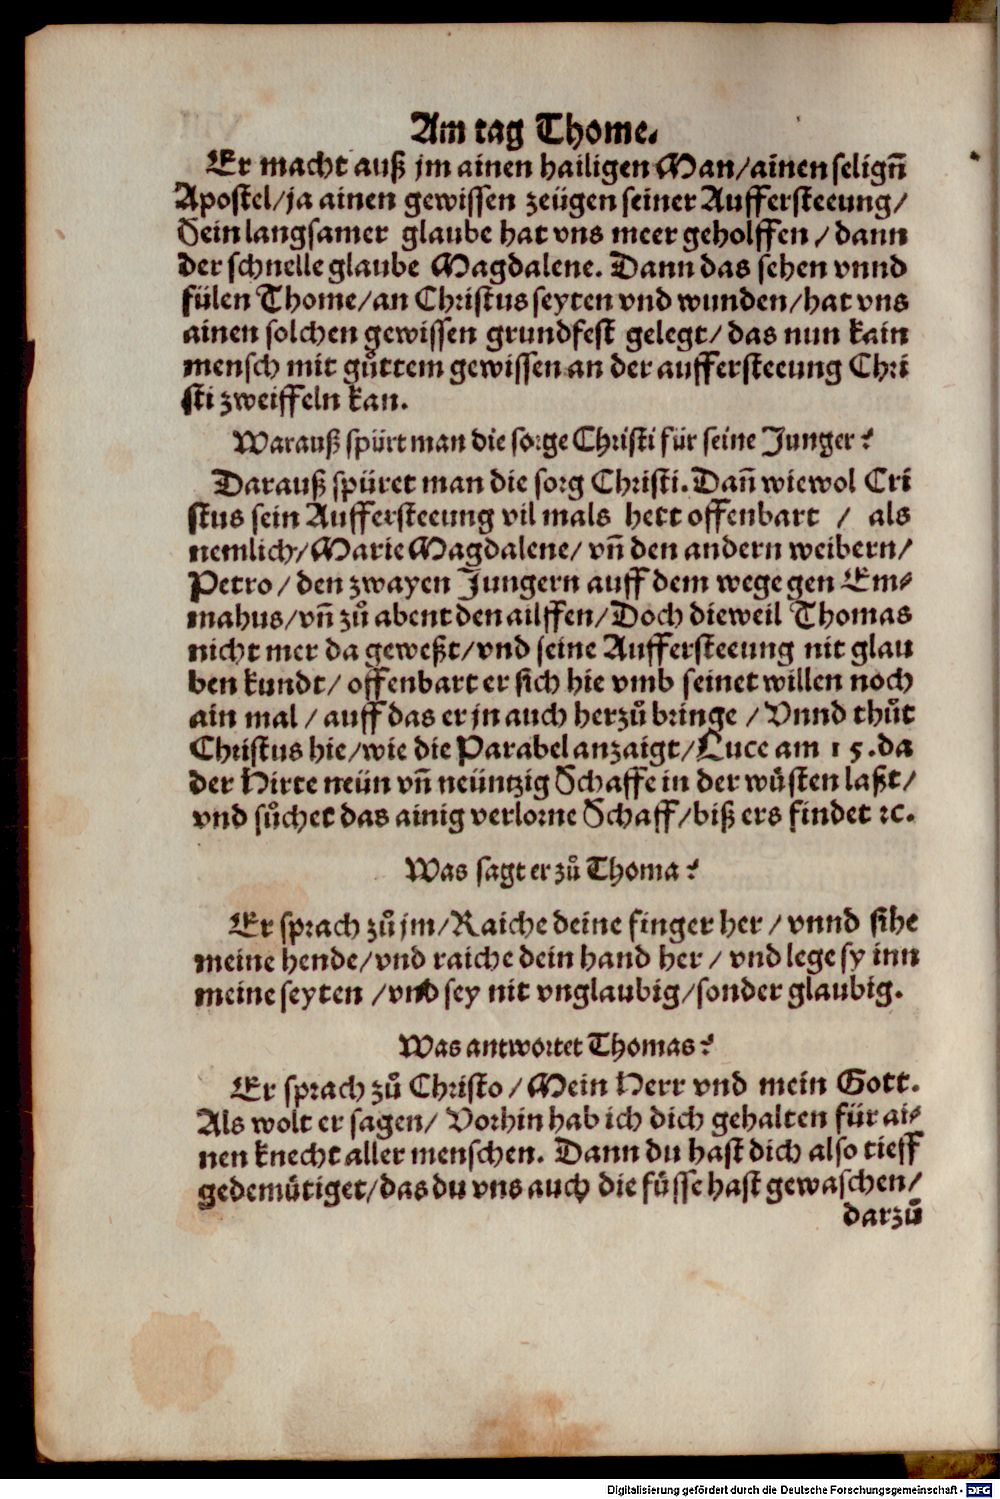 Am tag Thome.
Er macht auß jm ainen hailigen Man/ainen selign̄
Apostel/ja ainen gewissen zeügen seiner Aufferstеeung/
Sein langsamer glaube hat vns meer geholffen/dann
der schnelle glaube Magdalene. Dann das sehen vnnd
fülen Thome/an Christus seyten vnd wunden/hat vns
ainen solchen gewissen grundfest gelegt/das nun kain
mensch mit gůttem gewissen an der aufferstеeung Chri
sti zweiffeln kan.
Warauß spürt man die sorge Christi für seine Junger?
Darauß spüret man die sorg Christi. Dañ wiewol Cri
stus sein Aufferstеeung vil mals hett offenbart / als
nemlich/Marie Magdalene/vñ den andern weibern/
Petro/den zwayen Jungern auff dem wege gen Em⸗
mahus/vñ zů abent den ailffen/Doch dieweil Thomas
nicht mer da geweßt/vnd seine Aufferstеeung nit glau
ben kundt/offenbart er sich hie vmb seinet willen noch
ain mal/auff das er jn auch herzů bringe/Vnnd thůt
Christus hie/wie die Parabel anzaigt/Luce am 15.da
der Hirte neün vñ neüntzig Schaffe in der wüsten laßt/
vnd sůchet das ainig verlorne Schaff/biß ers findet ꝛc.
Was sagt er zů Thoma?
Er sprach zů jm/Raiche deine finger her/vnnd sihe
meine hende/vnd raiche dein hand her/vnd lege sy inn
meine seyten/vnd sey nit vnglaubig/sonder glaubig.
Was antwortet Thomas?
Er sprach zů Christo/Mein Herr vnd mein Gott.
Als wolt er sagen/Vorhin hab ich dich gehalten für ai⸗
nen knecht aller menschen. Dann du hast dich also tieff
gedemütiget/das du vns auch die füsse hast gewaschen/
darzů
Digitalisierung gefördert durch die Deutsche Forschungsgemeinschaft - DFG